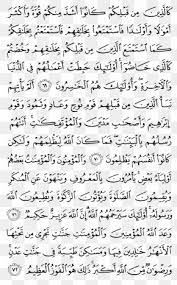 كَالَّذِينَ مِن قَبْلِكُمْ كَانُوٓا۟ أَشَدَّ مِنكُمْ قُوَّةً وَأَكْثَرَ
أَمْوَٰلًا وَأَوْلَٰدًا فَاسْتَمْتَعُوا۟ بِخَلَٰقِهِمْ فَاسْتَمْتَعْتُم بِخَلَٰقِكُمْ
كَمَا اسْتَمْتَعَ الَّذِينَ مِن قَبْلِكُم بِخَلَٰقِهِمْ وَخُضْتُمْ
كَالَّذِي خَاضُوٓا۟ أُو۟لَٰٓئِكَ حَبِطَتْ أَعْمَٰلُهُمْ فِي الدُّنْيَا
وَالْءَاخِرَةِ وَأُو۟لَٰٓئِكَ هُمُ الْخَٰسِرُونَ ٦٩ أَلَمْ يَأْتِهِمْ
نَبَأُ الَّذِينَ مِن قَبْلِهِمْ قَوْمِ نُوحٍ وَعَادٍ وَثَمُودَ وَقَوْمِ
إِبْرَٰهِيمَ وَأَصْحَٰبِ مَدْيَنَ وَالْمُؤْتَفِكَٰتِ أَتَتْهُمْ
رُسُلُهُم بِالْبَيِّنَٰتِ فَمَا كَانَ اللَّهُ لِيَظْلِمَهُمْ وَلَٰكِن
كَانُوٓا۟ أَنفُسَهُمْ يَظْلِمُونَ ٧٠ وَالْمُؤْمِنُونَ وَالْمُؤْمِنَٰتُ بَعْضُهُمْ
أَوْلِيَآءُ بَعْضٍ يَأْمُرُونَ بِالْمَعْرُوفِ وَيَنْهَوْنَ عَنِ الْمُنكَرِ
وَيُقِيمُونَ الصَّلَوٰةَ وَيُؤْتُونَ الزَّكَوٰةَ وَيُطِيعُونَ اللَّهَ
وَرَسُولَهُۥٓ أُو۟لَٰٓئِكَ سَيَرْحَمُهُمُ اللَّهُ إِنَّ اللَّهَ عَزِيزٌ حَكِيمٌ ٧١
وَعَدَ اللَّهُ الْمُؤْمِنِينَ وَالْمُؤْمِنَٰتِ جَنَّٰتٍ تَجْرِي مِن تَحْتِهَا
الْأَنْهَٰرُ خَٰلِدِينَ فِيهَا وَمَسَٰكِنَ طَيِّبَةً فِي جَنَّٰتِ عَدْنٍ
وَرِضْوَٰنٌ مِّنَ اللَّهِ أَكْبَرُ ذَٰلِكَ هُوَ الْفَوْزُ الْعَظِيمُ ٧٢